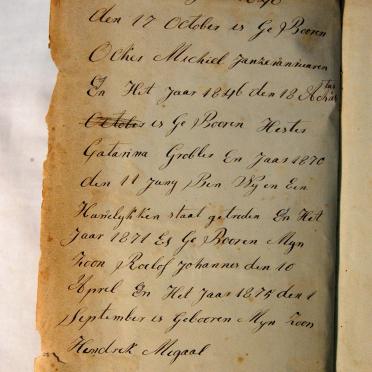 den 17 October is Ge Booren
Ockes Michiel Janzevanvuuren
En Het Jaar 1846 den 18
October is Ge Booren Hester
Catarina Grobler En Jaar 1870
den 11 Juny Ben Wy en Een
Huwelykken staat getreden En Het
Jaar 1871 Es Ge Booren Myn
Zoon Roelof Johannes den 10
April En Het Jaar 1875 den 1
September is Gebooren Myn Zoon
Hendrek Migaal